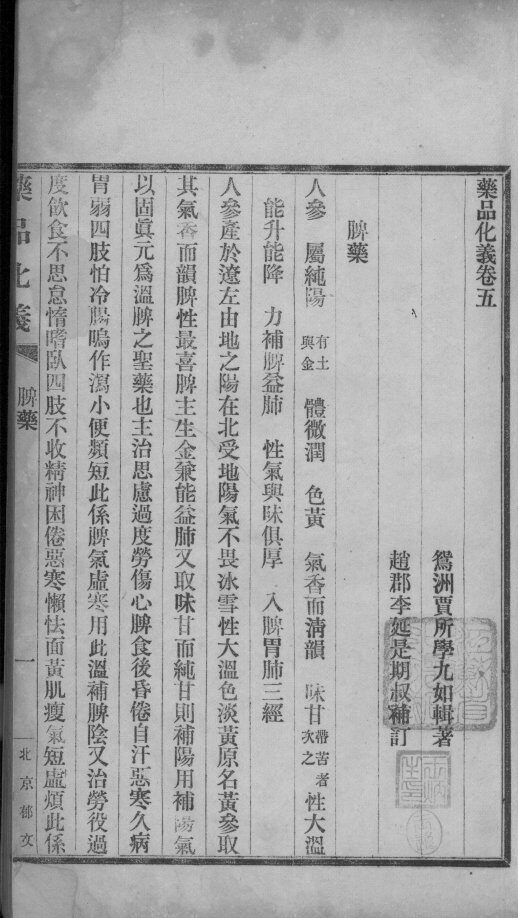 藥品化義卷五
鴛洲賈所學九如輯著
趙郡李延是期叔補訂
脾藥
人參 屬純陽 有土與金 體微潤 色黃 氣香而清韻 味甘帶苦者次之 性大溫
能升能降 力補脾益肺 性氣與味俱厚 入脾胃肺三經
人參產於遼左由地之陽在北受地陽氣不畏冰雪性大溫色淡黃原名黃參取
其氣香而韻脾性最喜脾主生金兼能益肺又取味甘而純甘則補陽用補陽氣
以固眞元爲溫脾之聖藥也主治思慮過度勞傷心脾食後昏倦自汗惡寒久病
胃弱四肢怕冷腸鳴作瀉小便頻短此係脾氣虛寒用此溫補脾陰又治勞役過
度飲食不思怠惰嗜臥四肢不收精神困倦惡寒懶怯面黃肌瘦氣短虛煩此係
藥品化義
脾藥
一
北京郁文